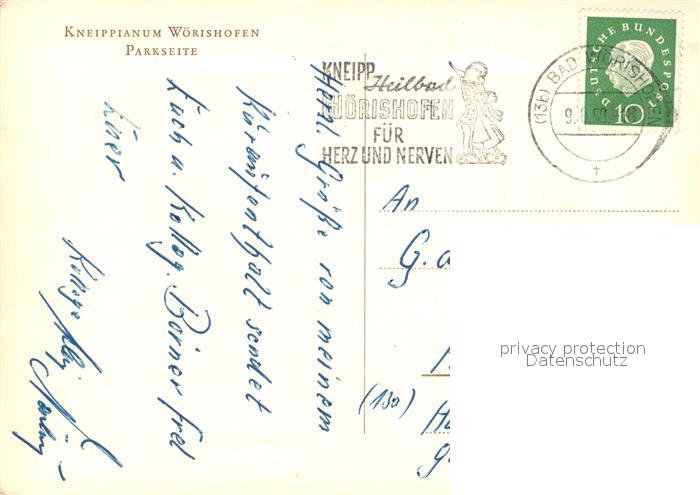 KNEIPPIANUM WÖRISHOFEN
PARKSEITE
KNEIPP
Heilbad
WÖRISHOFEN
FÜR
HERZ UND NERVEN
(13b) BAD WÖRISHOFEN
DEUTSCHE BUNDESPOST
10
Herzl. Grüße von meinem
Kuraufenthalt sendet
Euch u. Kolleg. Börner
Euer
Kollege
An
G.
(13a)
privacy protection
Datenschutz